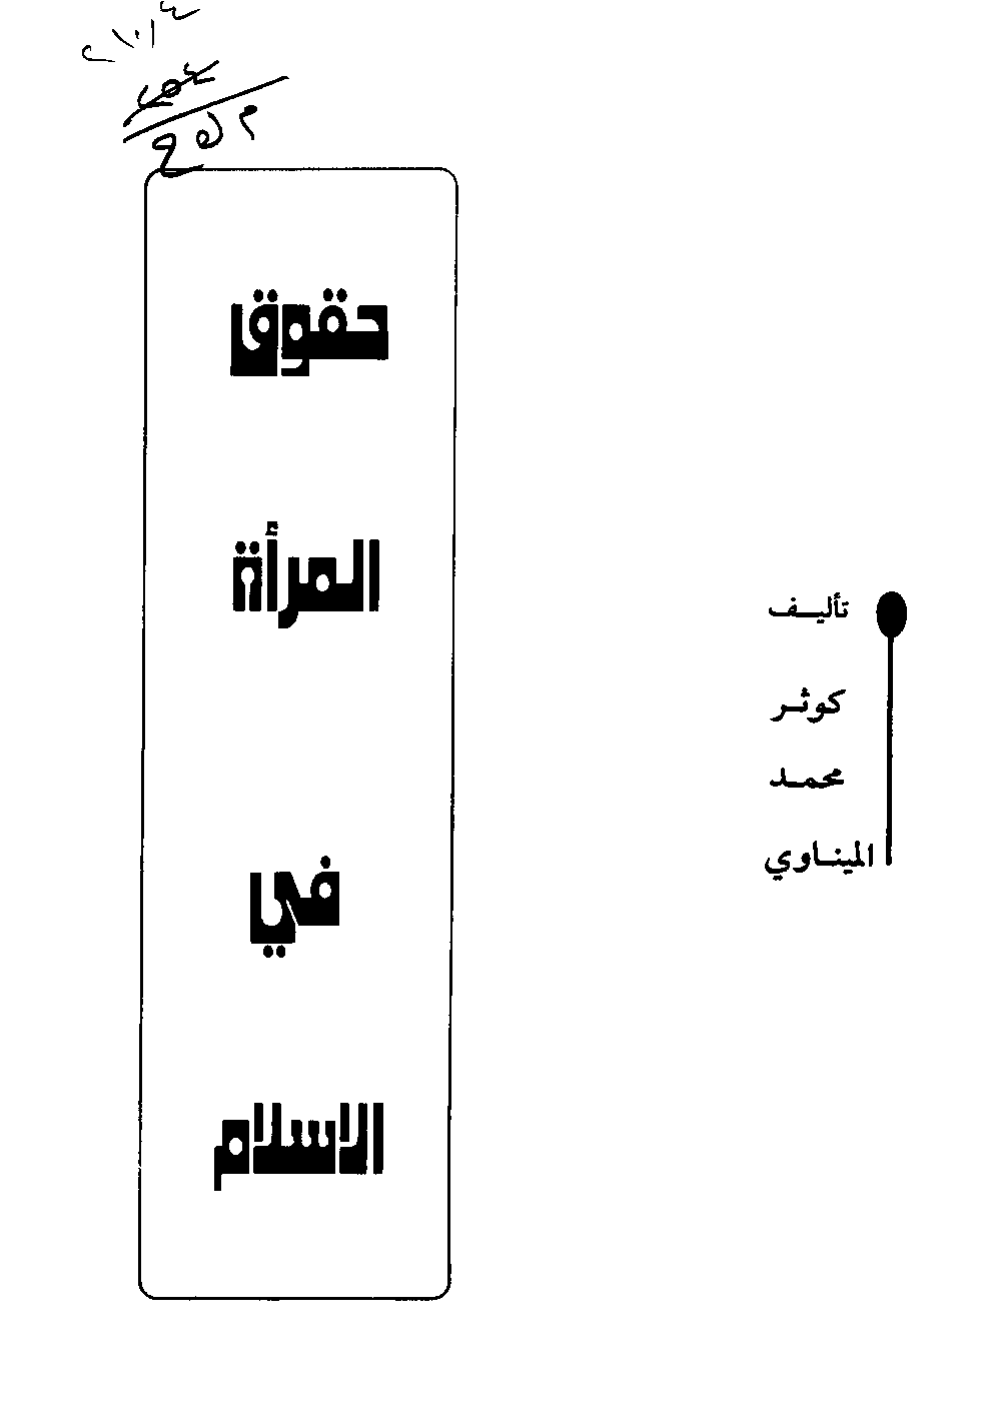 حقوق
المرأة
في
الاسلام
تأليف
كوثر
محمد
الميناوي